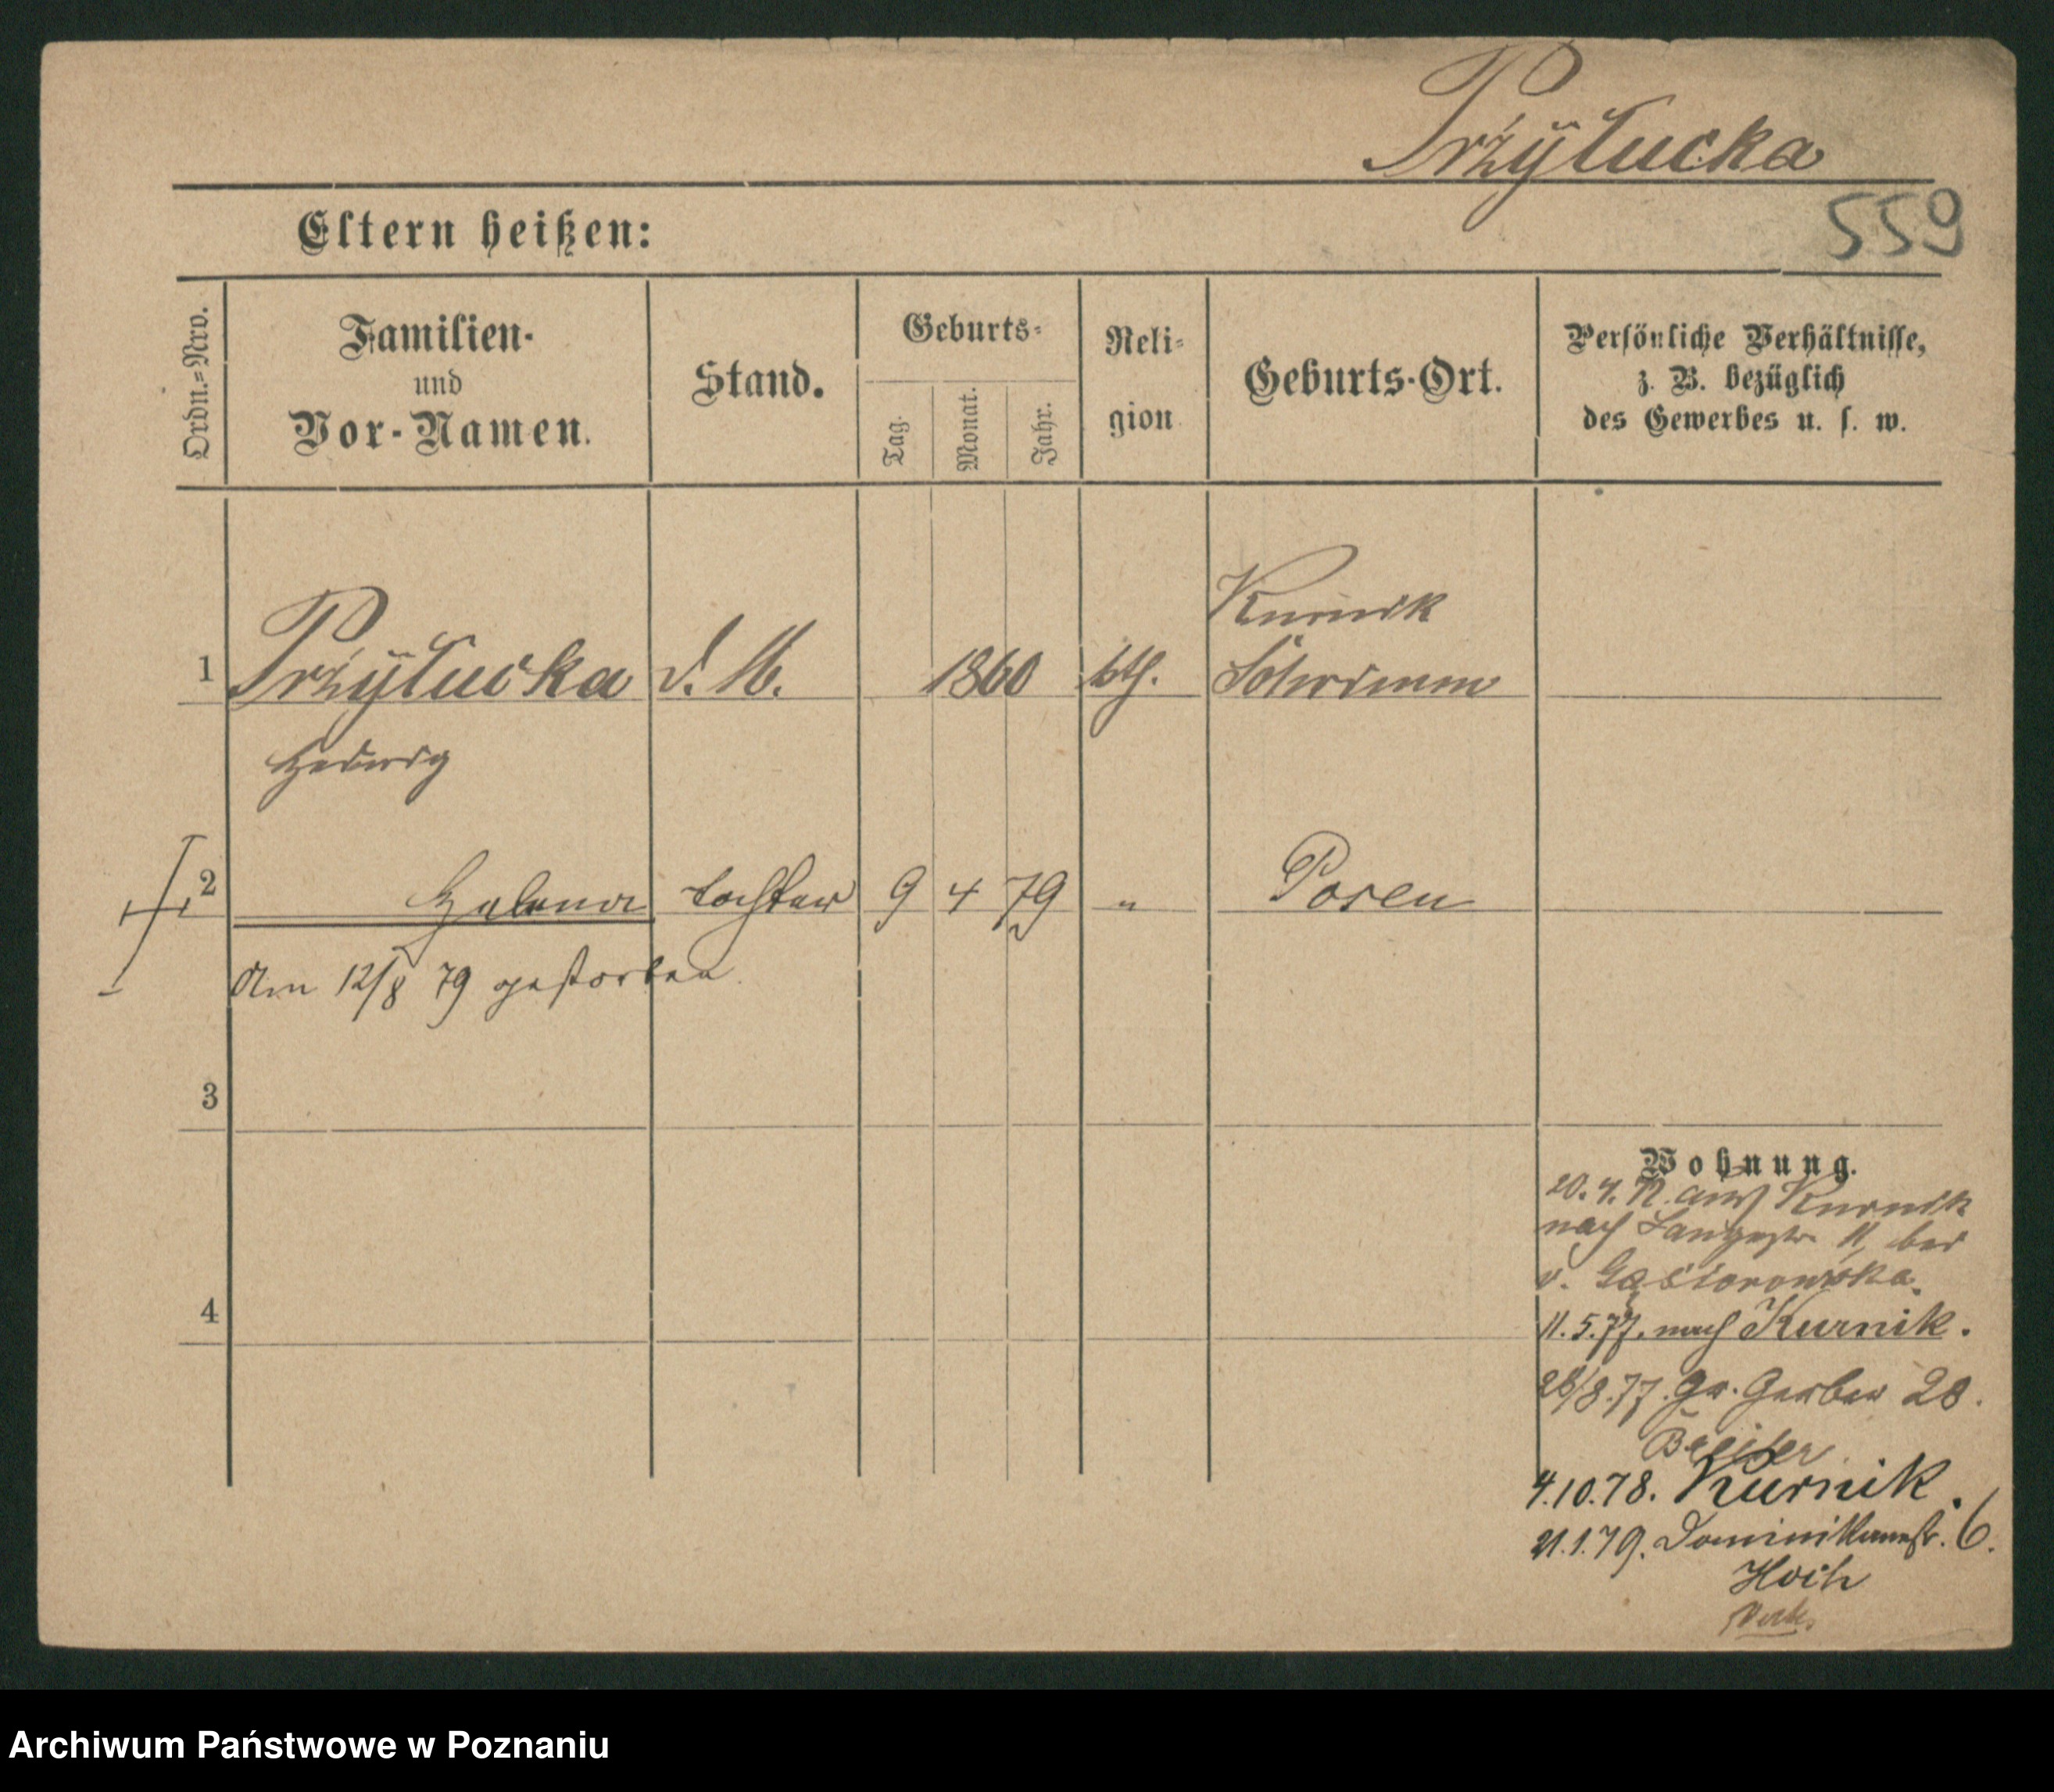 Pržÿlucka
559
Eltern heißen:
Ordn.=Nro.
Familien-
und
Vor-Namen.
Stand.
Geburts-
Tag.
Monat.
Jahr.
Reli-
gion
Geburts-Ort.
Persönliche Verhältnisse,
z. B. bezüglich
des Gewerbes u. s. w.
Kurnik
1 Pržÿlucka d. M. 1860 kth. Schrimm
Hedwig
2 Helena Tochter 9 4 79 " Posen
Am 12/8 79 gestorben.
3
Wohnung.
20. 4. aus Kurnik
nach Langestr. 11, bei
v. Gąsiorowska.
4
11. 5. 77. nach Kurnik.
28/8. 77. Gr. Gerber 28.
Breiter
4.10.78. Kurnik.
21.1.79. Dominikanerstr. 6.
Hoch